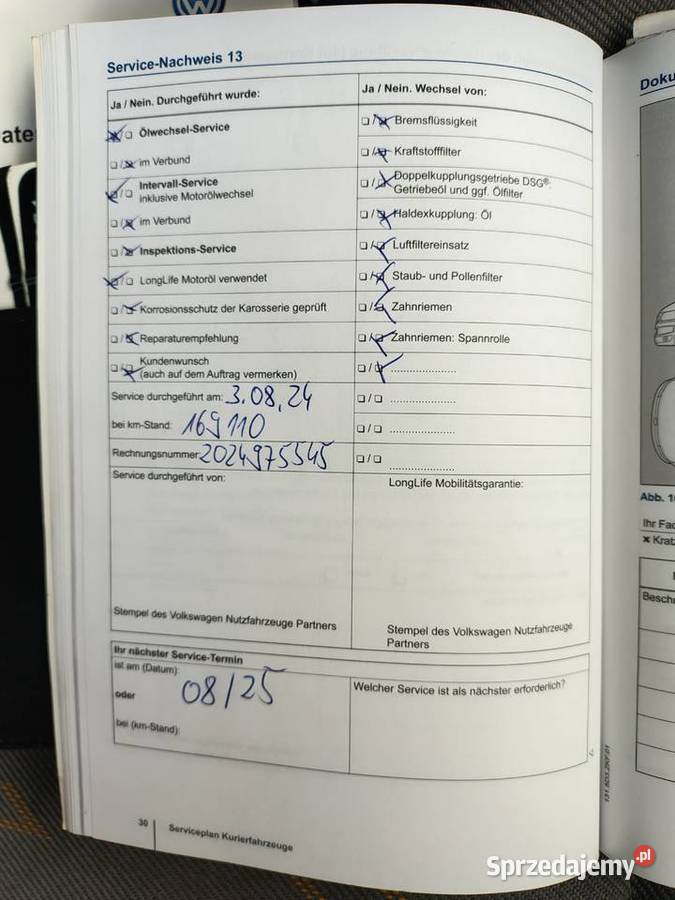 ate
Service-Nachweis 13
Ja / Nein. Durchgeführt wurde:
Ölwechsel-Service
im Verbund
Intervall-Service
inklusive Motorölwechsel
im Verbund
Inspektions-Service
LongLife Motoröl verwendet
Korrosionsschutz der Karosserie geprüft
Reparaturempfehlung
Kundenwunsch
(auch auf dem Auftrag vermerken)
Service durchgeführt am: 3.08.24
bei km-Stand: 169110
Rechnungsnummer: 2024975545
Service durchgeführt von:
Stempel des Volkswagen Nutzfahrzeuge Partners
Ja / Nein. Wechsel von:
Bremsflüssigkeit
Kraftstofffilter
Doppelkupplungsgetriebe DSG®:
Getriebeöl und ggf. Ölfilter
Haldexkupplung: Öl
Luftfiltereinsatz
Staub- und Pollenfilter
Zahnriemen
Zahnriemen: Spannrolle
.....................
.....................
.....................
.....................
LongLife Mobilitätsgarantie:
Stempel des Volkswagen Nutzfahrzeuge
Partners
Ihr nächster Service-Termin
ist am (Datum):
08/25
oder
bei (km-Stand):
Welcher Service ist als nächster erforderlich?
30
Serviceplan Kurierfahrzeuge
Doku
Abb. 1
Ihr Fac
× Krat
Besch
Sprzedajemy.pl